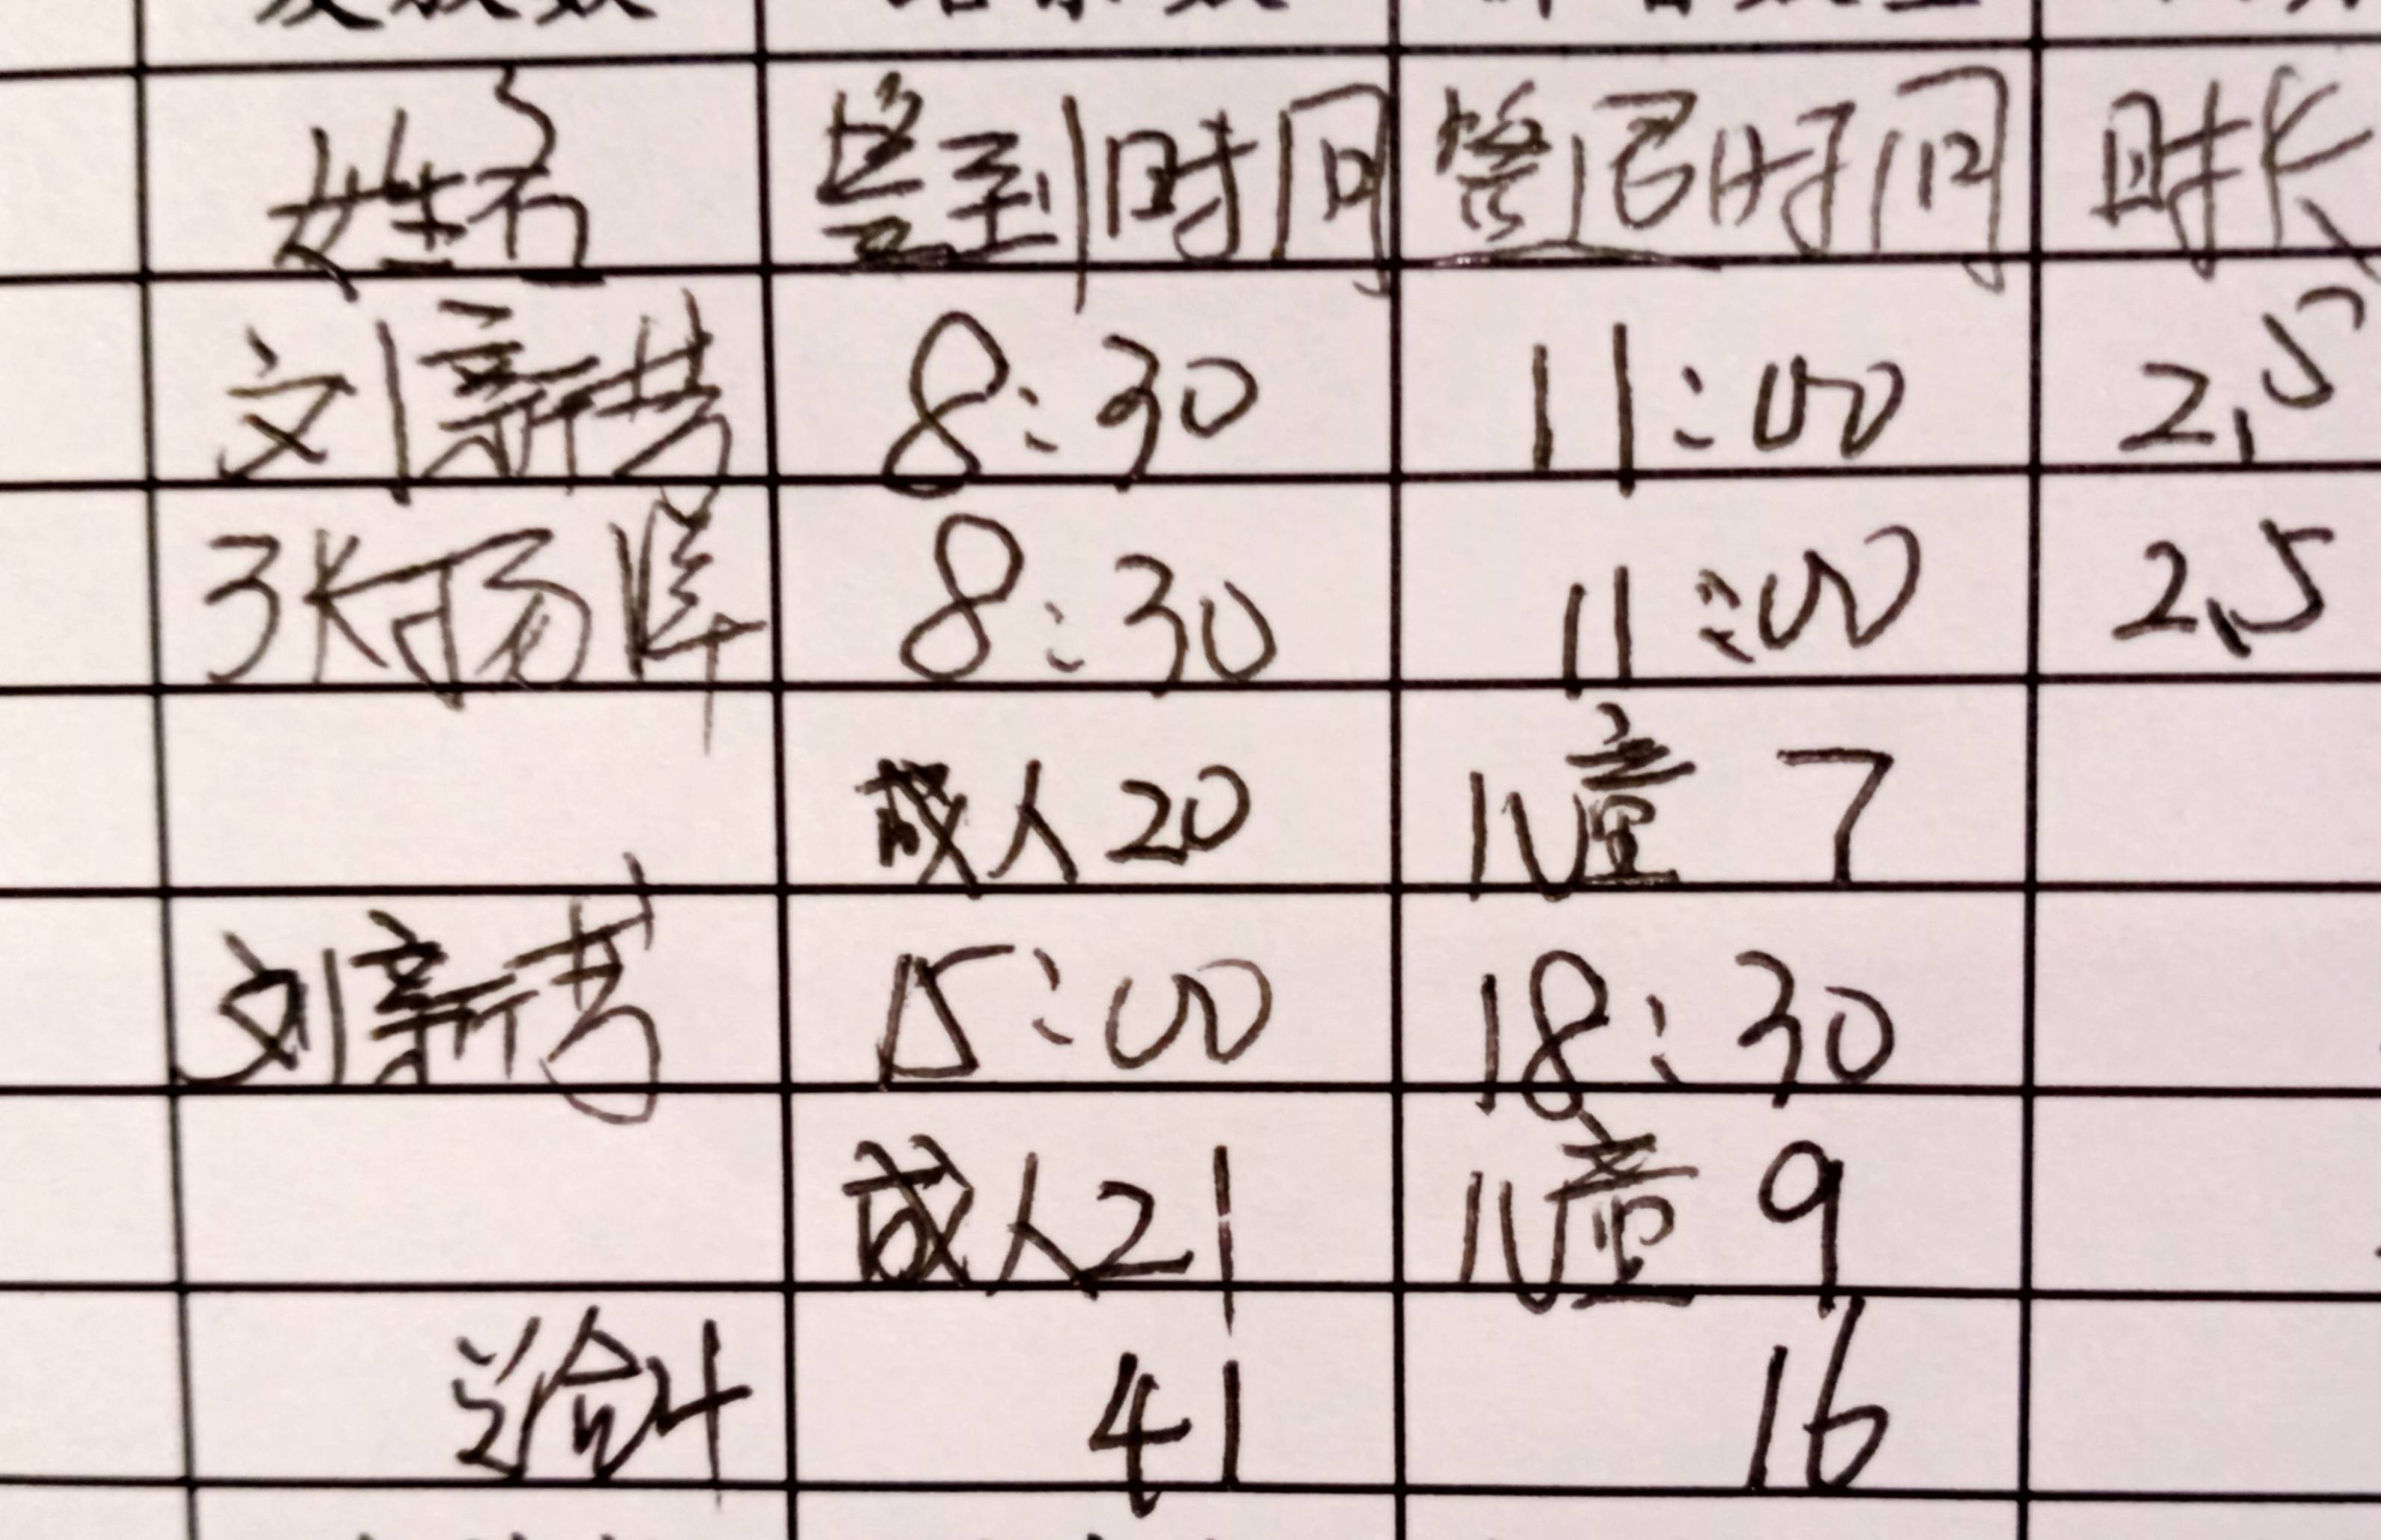 姓名 签到时间 签退时间 时长
刘新芳 8:30 11:00 2.5
张扬 8:30 11:00 2.5
成人20 儿童 7
刘新芳 15:00 18:30
成人21 儿童 9
总合计 41 16